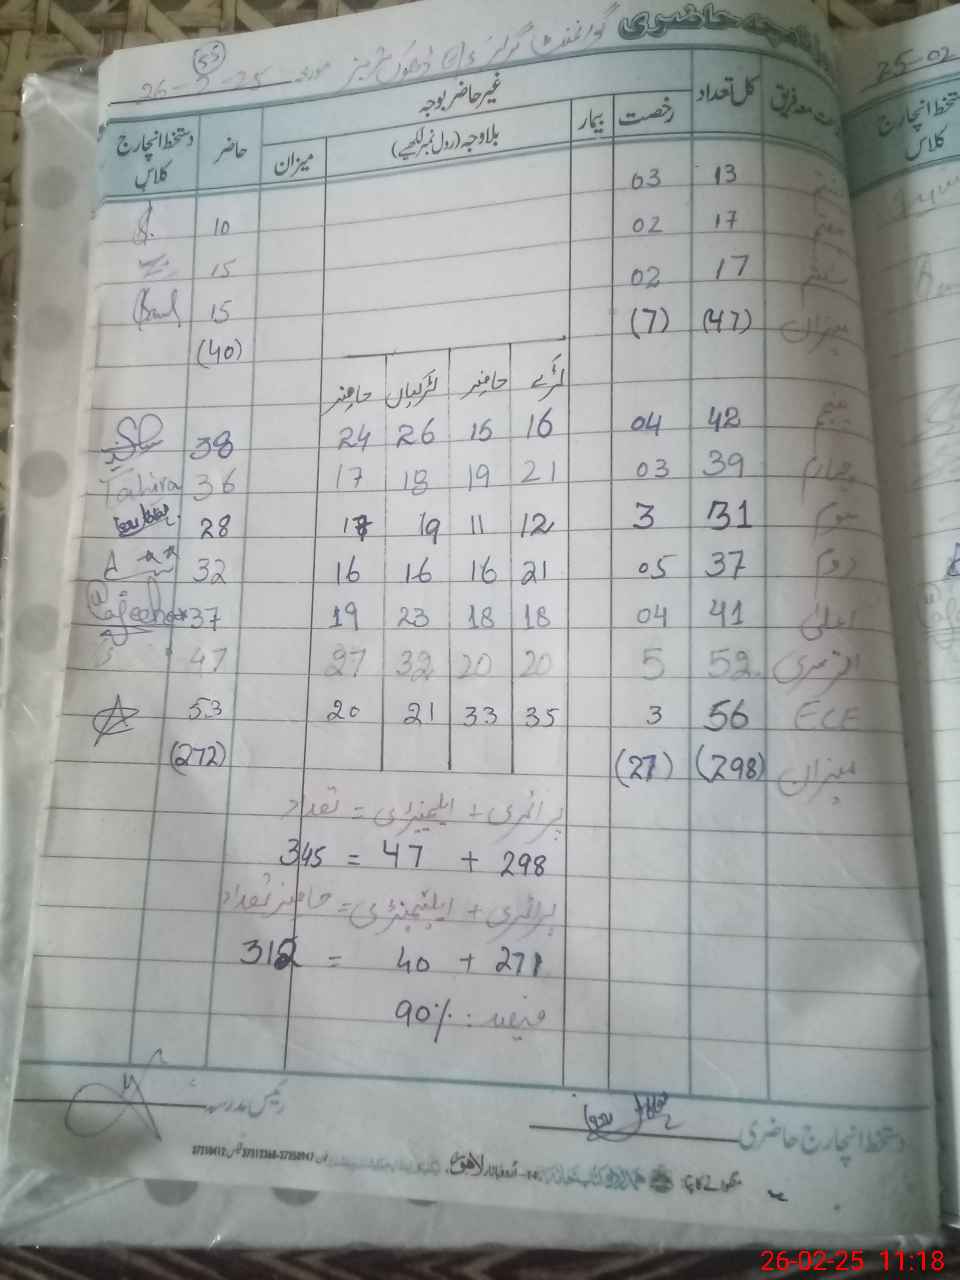 حاضری
گورنمنٹ گرلز مورخہ 26-2-25
(55)
25-02
معہ فریق کل تعداد رخصت بیمار غیر حاضر بوجہ حاضر دستخط انچارج کلاس
بلاوجہ (رول نمبر لکھیے) میزان
دستخط انچارج کلاس
13 03
ہفتم 17 02 10
17 02 15
میزان (47) (7) 15
(40)
لڑکے حاضر لڑکیاں حاضر
پنجم 42 04 16 15 26 24 38
چہارم 39 03 21 19 18 17 36 Tahira
سوم 31 3 12 11 19 17 28
دوم 37 05 21 16 16 16 32
اعلیٰ 41 04 18 18 23 19 37
52 5 20 20 32 27 47
ECE 56 3 35 33 21 20 53
میزان (298) (27) (272)
پرائمری + ایلیمنٹری = تعداد
298 + 47 = 345
پرائمری + ایلیمنٹری = حاضر تعداد
271 + 40 = 312
فیصد : 90%
دستخط انچارج حاضری رئیس مدرسہ
اردو بازار لاہور
26-02-25 11:18